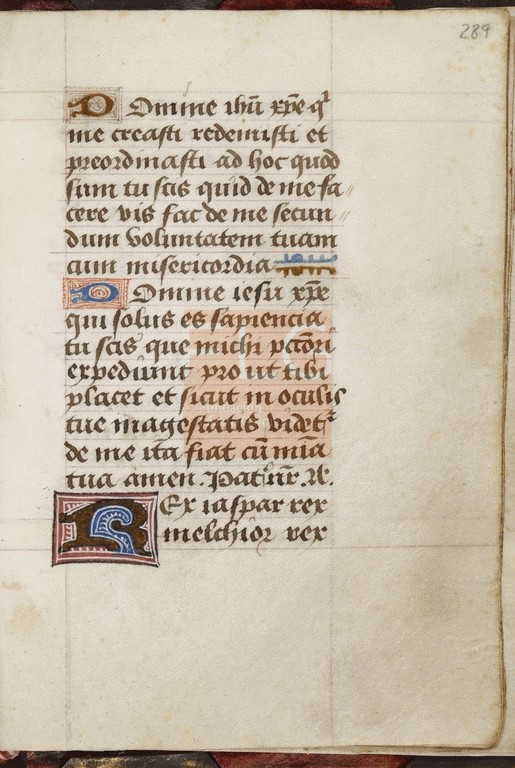 289
Domine ihū xp̄e qͥ
me creasti redemisti et
preordinasti ad hoc quod
sum tu scis quid de me fa〃
cere vis fac de me secun〃
dum voluntatem tuam
cum misericordia
Domine iesu xp̄e
qui solus es sapiencia
tu scis que michi pctōri
expediunt pro ut tibi
placet et sicut in oculis
tue magestatis videtᷣ
de me ita fiat cū mīa
tua amen. Patᷣ nr̄. Aͤ.
Rex iaspar rex
melchior rex